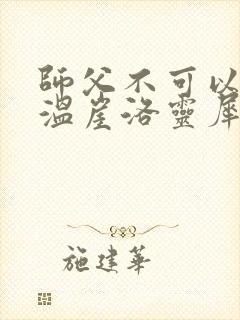 師父不可以
溫崖洛靈犀
施建華